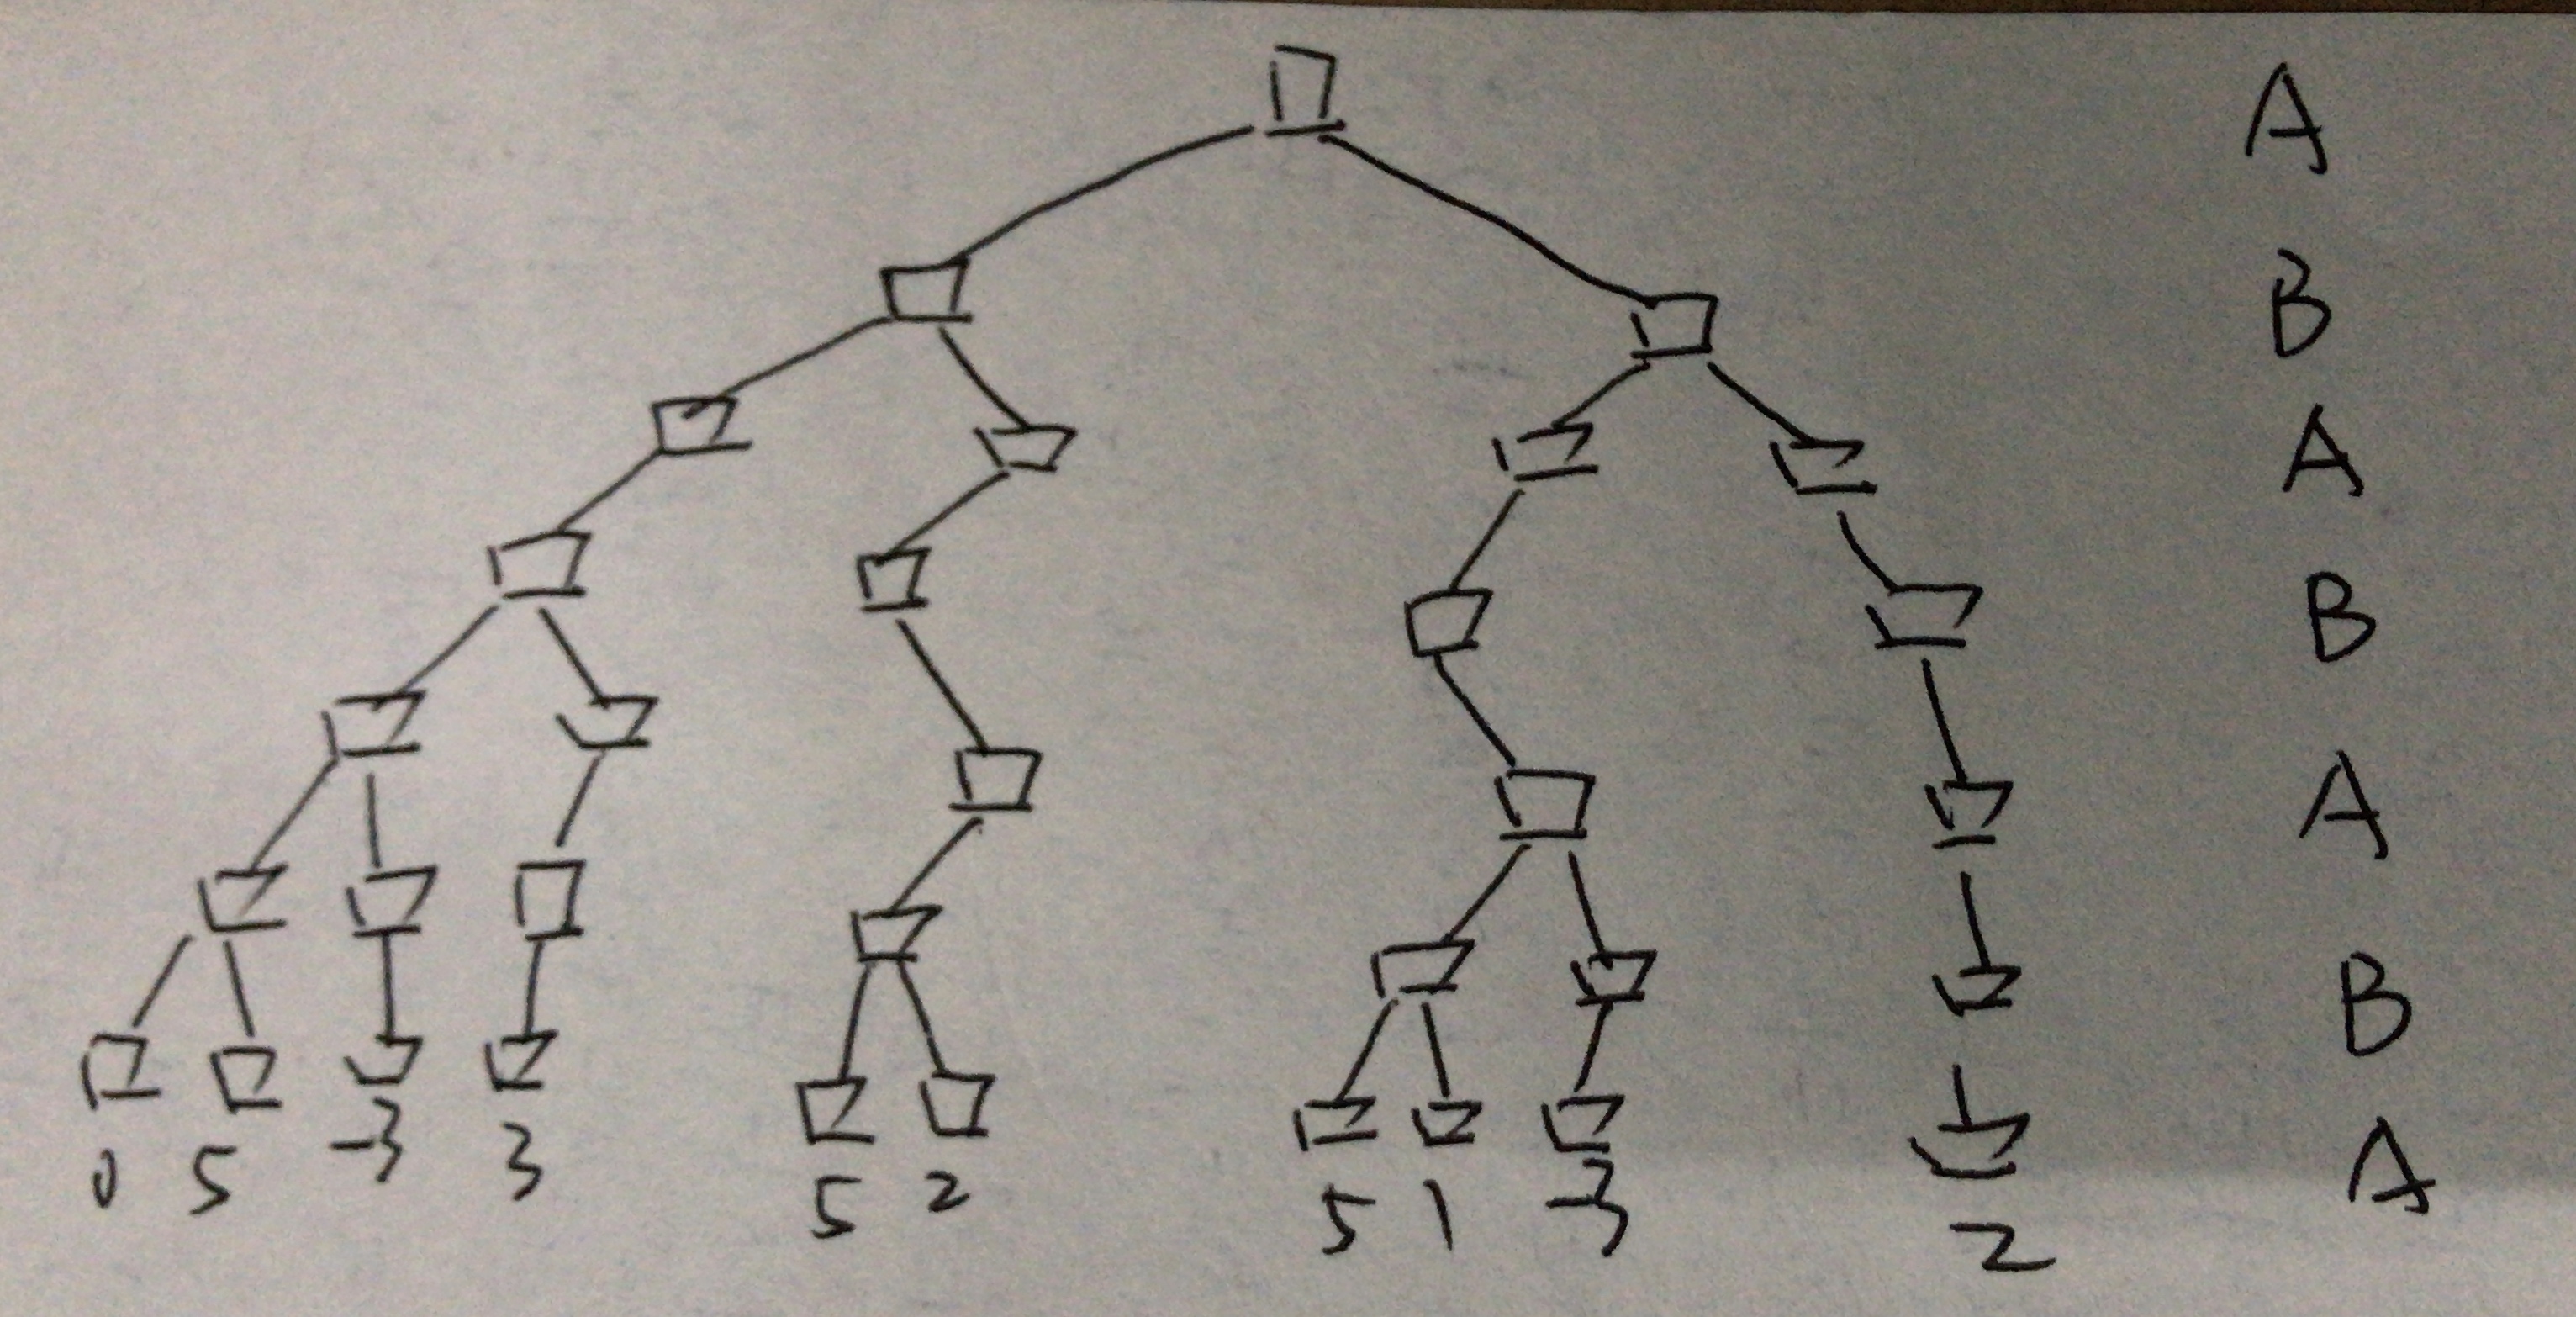 A
B
A
B
A
B
A
0 5 -3 3 5 2 5 1 -3 2